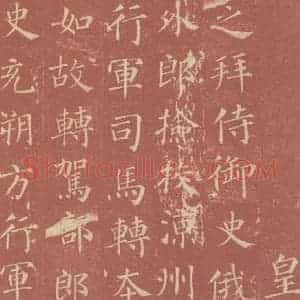 皇
之拜侍御史俄
外郎檢校涼州
行軍司馬轉本
如故轉駕部郎
史充朔方行軍